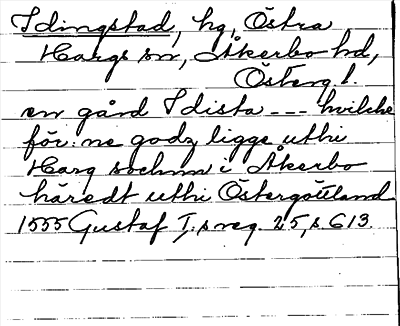 Idingstad, hg, Östra
Hargs sn, Åkerbo hd,
Österg l.
en gård Idista --- hvilche
för: ne godz ligge uthi
Harg sochnn i Åkerbo
häredt uthi Östergöttland
1555 Gustaf I:s reg. 25, s. 613.